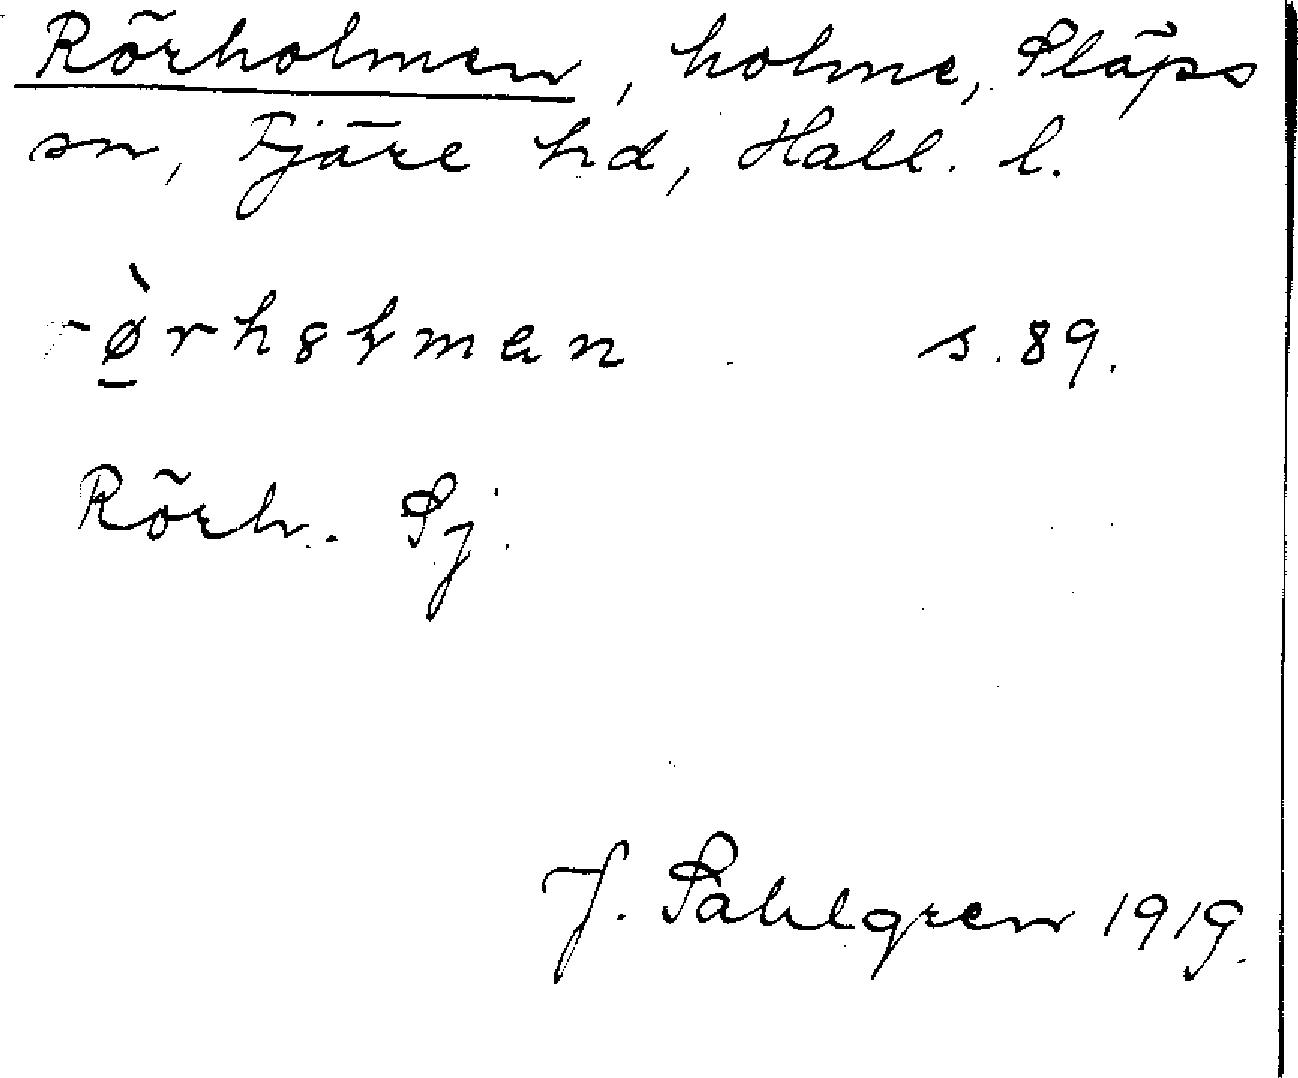 Rörholmen, holme, Släps
sn, Fjäre hd, Hall. l.
s. 89.
Rörh. Sj.
J. Sahlgren 1919.